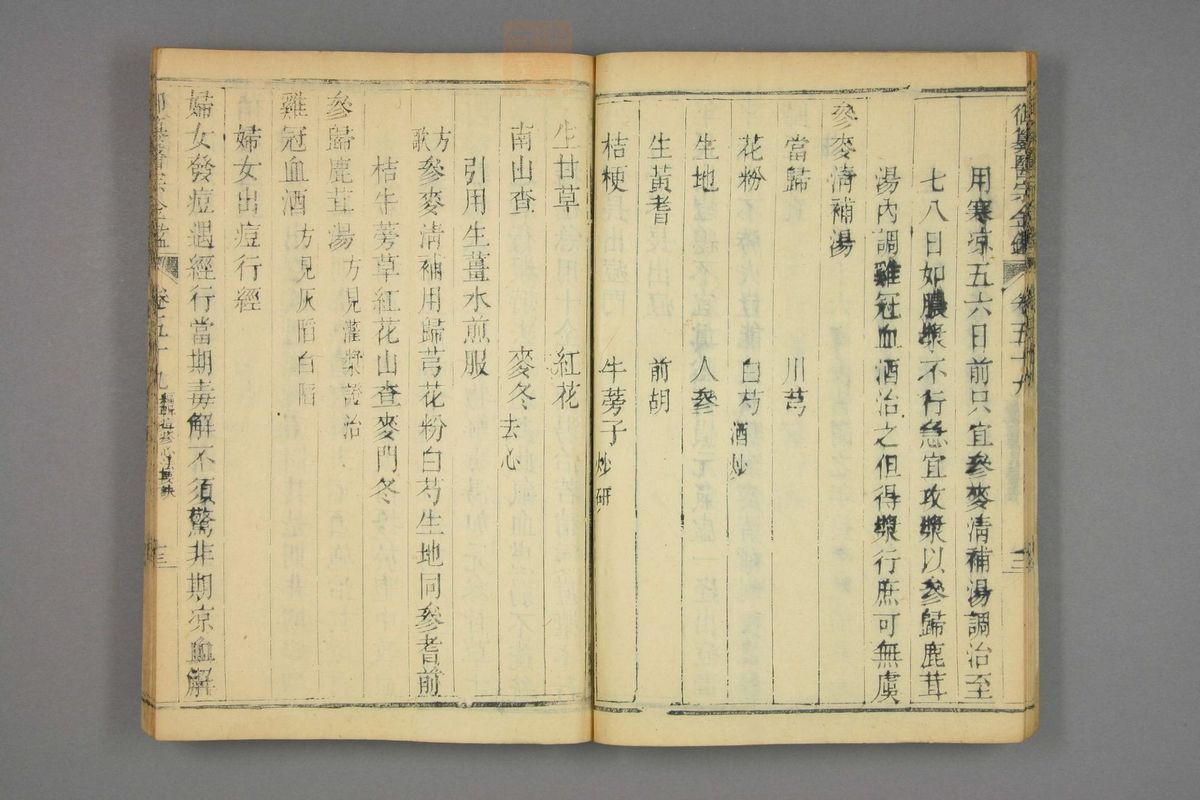 御纂醫宗金鑑 卷五十九 十三
用寒凉五六日前只宜參麥清補湯調治至
七八日如膿漿不行急宜攻漿以參歸鹿茸
湯內調雞冠血酒治之但得漿行庶可無虞
參麥清補湯
當歸 川芎
花粉 白芍酒炒
生地 人參
生黃耆 前胡
桔梗 牛蒡子炒研
生甘草 紅花
南山查 麥冬去心
引用生薑水煎服
方歌 參麥清補用歸芎花粉白芍生地同參耆前
桔牛蒡草紅花山查麥門冬
參歸鹿茸湯方見灌漿證治
雞冠血酒方見灰陷白陷
婦女出痘行經
婦女發痘遇經行當期毒解不須驚非期凉血解
卷五十九 心法要訣 十三